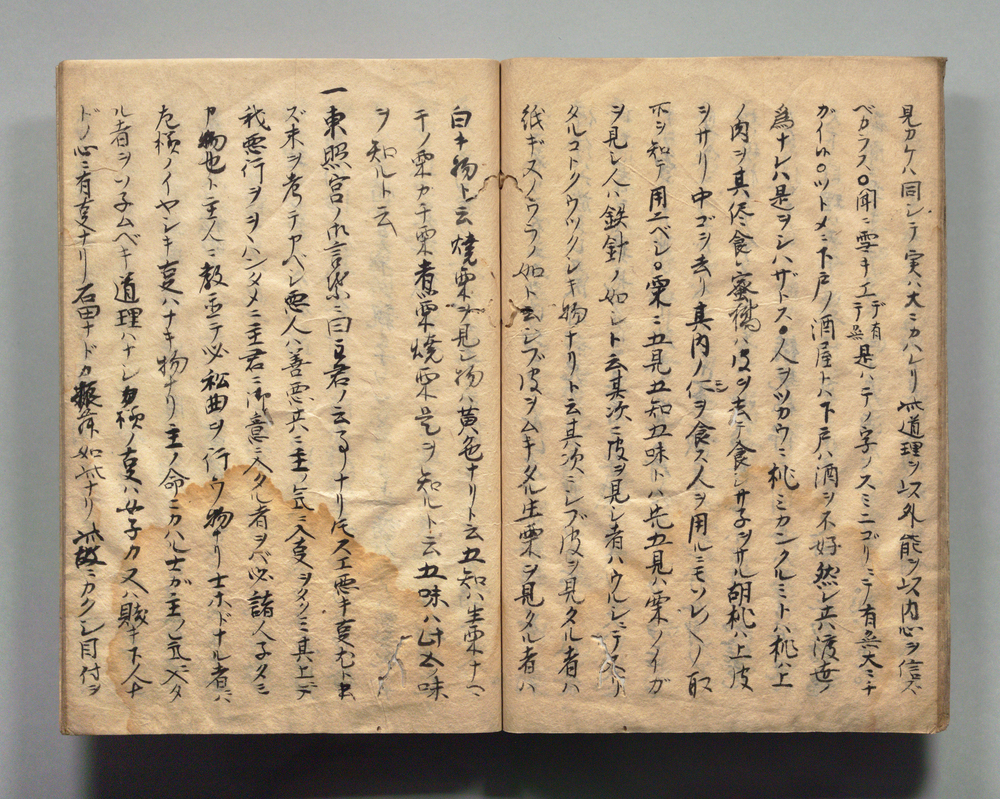 見カケハ同シテ実ハ大ニカハレリ此道理ヲ以外能ヲ以内心ヲ信ズ
ベカラス○聞ニ雪キエデ有デ無是ハテノ字ノスミニゴリニテ有無大ニチ
ガイ○ツトメニ下戸ノ酒屋トハ下戸ハ酒ヲ不好然レ共渡世ノ
為ナレハ是ヲシハザトス○人ヲツカウニ桃ミカンクルミトハ桃ハ上
ノ肉ヲ其侭食シ蜜橘ハ皮ヲ去テ食シサ子ヲサル胡桃ハ上皮
ヲサリ中ゴヲ去リ其内ノ仁ヲ食ス人ヲ用ルニモソレ〱ノ取
所ヲ知テ用ユベシ○栗ニ五見五知五味トハ先五見ハ栗ノイガ
ヲ見シ人ハ鉄針ノ如シト云其次ニ皮ヲ見シ者ハウルシニテ
タルコトクウツクシキ物ナリト云其次ニシブ皮ヲ見タル者ハ
紙ギヌノウラノ如ト云シブ皮ヲムキタル生栗ヲ見タル者ハ
白キ物ト云焼栗ヲ見シ物ハ黄色ナリト云五知ハ生栗ナヘ
テノ栗カチ栗煮栗焼栗是ヲ知ルト云五味ハ此五味
ヲ知ルト云
一東照宮ノ御言葉ニ曰主君ノ云事ナリ共スエ悪キ事ナド
ズ末ヲ考テアベシ悪人ハ善悪共ニ主ノ気ニ入事ヲタクミ其上デ
我悪行ヲヲハンタメニ主君ニ御意ニ入タル者ヲベ必諸人子タミ
ア物也ト主人ニ教立テ必私曲ヲ行ウ物ナリ士ホドナル者ハ
左様ノイヤシキ事ハナキ物ナリ主ノ命ニカハル士ガ主ノ気ニ入タ
ル者ヲソ子ムベキ道理ハナシカ様ノ事ハ女子カ又ハ賤キ下人ナ
ドノ心ニ有事ナリ石田ナドカ振舞如此ナリ此故ニカクシ目付ヲ